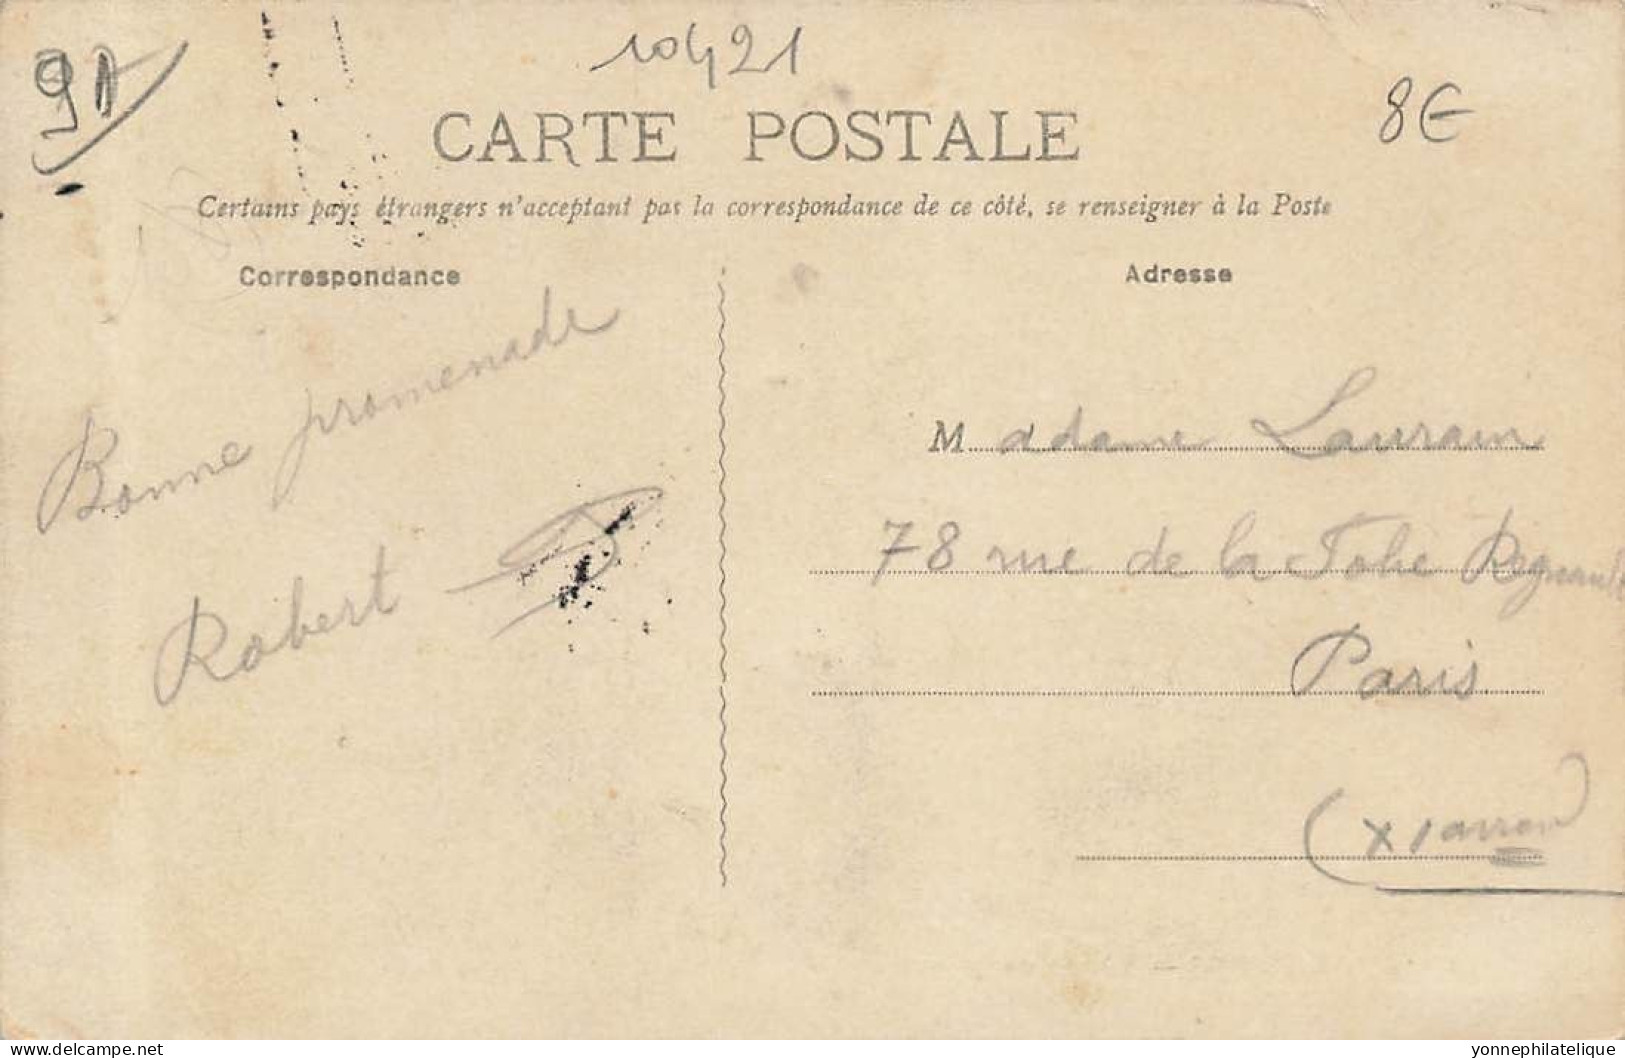 91
10421
8€
CARTE POSTALE
Certains pays étrangers n'acceptant pas la correspondance de ce côté, se renseigner à la Poste
Correspondance
Adresse
Bonne promenade
Robert
Madame Laurain
78 rue de la Folie Regnault
Paris
(XI arron)
www.delcampe.net
yonnephilatelique